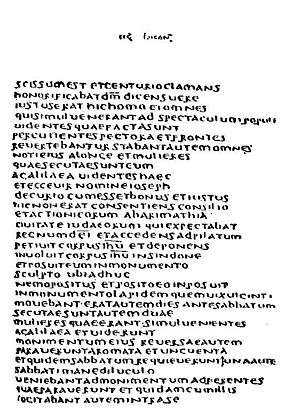 sec lucan
scissum est et centurio clamans
honorificabat dm̅ dicens uere
iustus erat hic homo et omnes
qui simul uenerant ad spectaculum populi
uidentes quae facta sunt
percutientes pectora et frontes
reuertebantur stabant autem omnes
noti eius a longe et mulieres
quae secutae sunt eum
a galilaea uidentes haec
et ecce uir nomine ioseph
decurio cum esset bonus et iustus
hic non erat consentiens consilio
et actioni eorum ab arimathia
ciuitate iudaeorum qui expectabat
regnum dei̅ et accedens ad pilatum
petiuit corpus ihu̅ et deponens
inuoluit corpus ihu̅ in sindone
et posuit eum in monumento
sculpto ubi adhuc
nemo positus et posito eo inposuit
in monumento lapidem quem uix uiginti
mouebant erat autem dies ante sabbatum
secutae sunt autem duae
mulieres quae erant simul uenientes
a galilaea et uiderunt
monimentum eius reuersae autem
parauerunt aromata et unguenta
et quidem sabbatum requieuerunt una autem
sabbati mane diluculo
ueniebant ad monimentum adferentes
quae parauerunt et quidam cum illis
cogitabant autem intra se